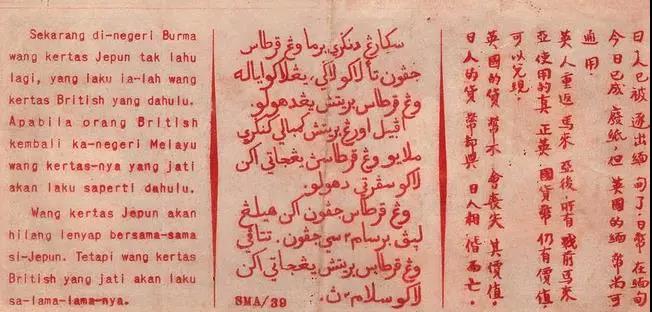 Sekarang di-negeri Burma
wang kertas Jepun tak lahu
lagi, yang laku ia-lah wang
kertas British yang dahulu.
Apabila orang British
kembali ka-negeri Melayu
wang kertas-nya yang jati
akan laku saperti dahulu.
Wang kertas Jepun akan
hilang lenyap bersama-sama
si-Jepun. Tetapi wang kertas
British yang jati akan laku
sa-lama-lama-nya.
سكارڠ دنݢري برما وڠ قرطاس
جڤون تا٢ لاكو لاݢي، يڠ لاكو اياله
وڠ قرطاس بريتش يڠ دهولو.
اڤبيل اورڠ بريتش كمبالي كنݢري
ملايو وڠ قرطاسڽ يڠ جاتي اكن
لاكو سڤرتي دهولو.
وڠ قرطاس جڤون اكن هيلڠ
لڽڤ برسام٢ سي جڤون. تتاڤي
وڠ قرطاس بريتش يڠ جاتي اكن
لاكو سلام٢ڽ.
SMA/39
日人已被逐出緬甸了，日幣在緬甸
今日已成廢紙，但英國的緬幣尚可
通用，
英人重返馬來亞後，所有戰前馬來
亞使用的真正英國貨幣仍有價值，
可以兌現，
英國的貨幣不會喪失其價值，
日人的貨幣卽與日人相偕而亡，